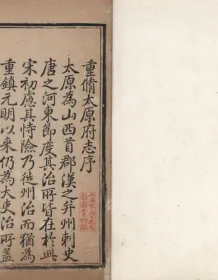 重脩太原府志序
太原為山西首郡漢之并州刺史
唐之河東節度其治所皆在於此
宋初慮其恃險乃徙州治而猶為
重鎮元明以来仍為大吏治所蓋